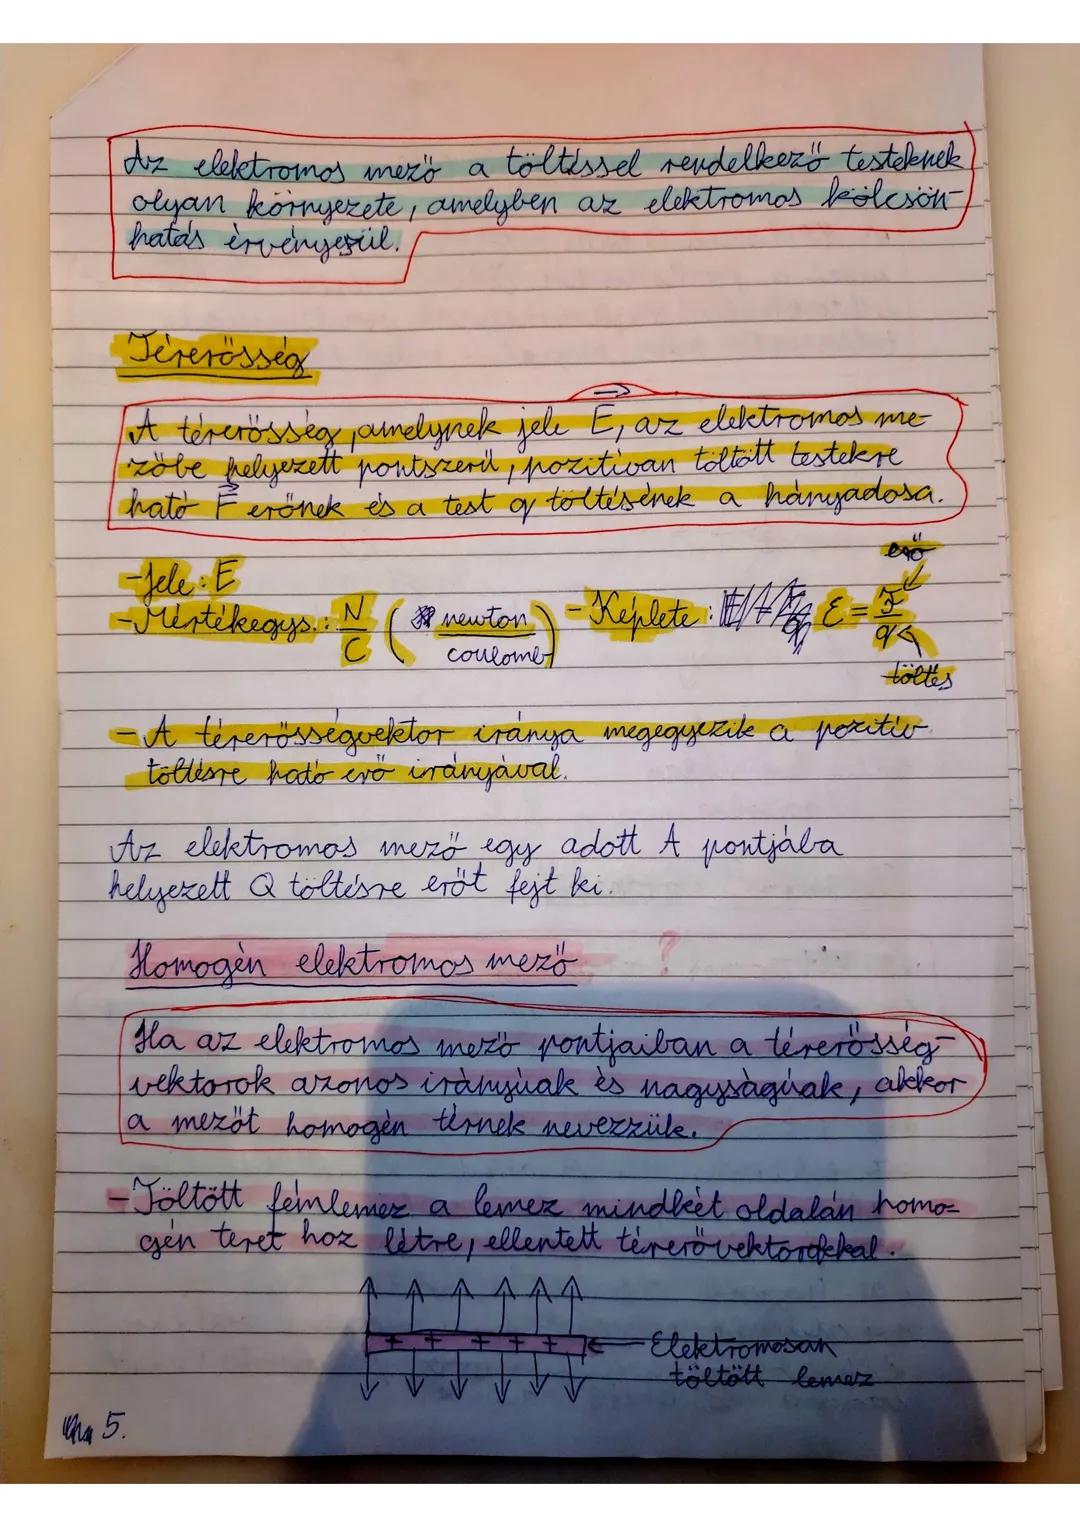 Az elektromos mező a töltéssel rendelkező testeknek
olyan környezete, amelyben az elektromos kölcsön-
hatás érvényesül.
Térerősség
A térerősség, amelynek jele E, az elektromos me-
zőbe helyezett pontszerű, pozitívan töltött testekre
ható F erőnek és a test q töltésének a hányadosa.
erő
-Jele: E
-Mértékegys.: N/C (newton/coulomb) -Képlete: E = F/q
töltés
-A térerősségvektor iránya megegyezik a pozitív
töltésre ható erő irányával.
Az elektromos mező egy adott A pontjába
helyezett Q töltésre erőt fejt ki.
Homogén elektromos mező ?
Ha az elektromos mező pontjaiban a térerősség-
vektorok azonos irányúak és nagyságúak, akkor
a mezőt homogén térnek nevezzük.
-Töltött fémlemez a lemez mindkét oldalán homo=
gén teret hoz létre, ellentett térerővektorokkal.
+ + + + +
Elektromosan
töltött lemez
5.